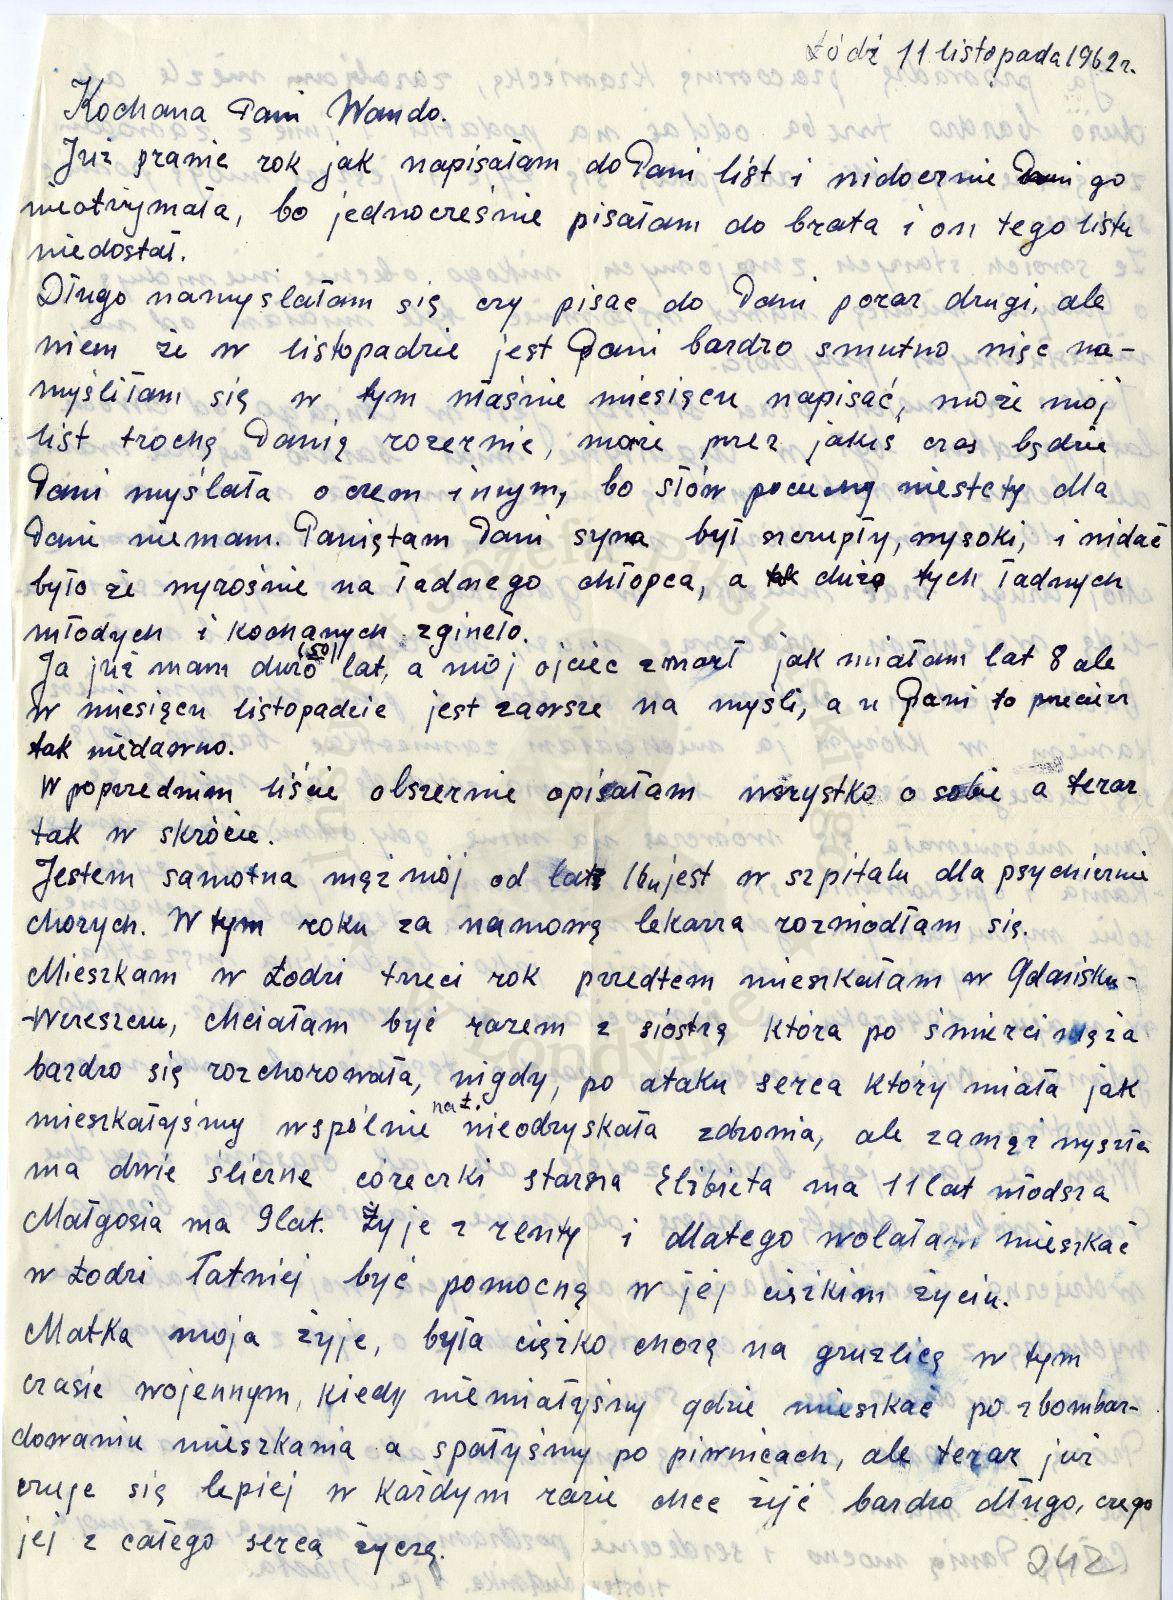 Łódź 11 listopada 1962 r.
Kochana Pani Wando.
Już prawie rok jak napisałam do Pani list i widocznie Pani go
nieotrzymała, bo jednocześnie pisałam do brata i on tego listu
niedostał.
Długo namyslałam się czy pisac do Pani poraz drugi, ale
wiem że w listopadzie jest Pani bardzo smutno więc na-
myśliłam się w tym właśnie miesiącu napisać, może mój
list trochę Panią rozerwie, może prez jakiś czas będzie
Pani myślała o czem innym, bo słów pociechy niestety dla
Pani niemam. Pamiętam Pani syna był szczupły, wysoki, i widać
było że wyrośnie na ładnego chłopca, a tak dużo tych ładnych
młodych i kochanych zgineło.
Ja już mam dużo (50) lat, a mój ojciec zmarł jak miałam lat 8 ale
w miesiącu listopadzie jest zawsze na myśli, a u Pani to przecież
tak niedawno.
W poprzednim liście obszernie opisałam wszystko o sobie a teraz
tak w skrócie.
Jestem samotna mąż mój od lat 16u jest w szpitalu dla psychicznie
chorych. W tym roku za namową lekarza rozwiodłam się.
Mieszkam w Łodzi trzeci rok przedtem mieszkałam w Gdańsku-
-Wrzeszczu, chciałam być razem z siostrą która po śmierci męża
bardzo się rozchorowała, nigdy, po ataku serca który miała jak
mieszkałyśmy wspólnie nieodzyskała zdrowia, ale zamąż wyszła
ma dwie śliczne córeczki starsza Elżbieta ma 11 lat młodsza
Małgosia ma 9 lat. Żyje z renty i dlatego wolałam mieszkać
w Łodzi łatwiej być pomocną w jej ciężkim życiu.
Matka moja żyje, była ciężko chorą na gruzlicę w tym
czasie wojennym, kiedy niemiałyśmy gdzie mieszkać po zbombar-
dowaniu mieszkania a spałyśmy po piwnicach, ale teraz już
czuje się lepiej w każdym razie chce żyć bardzo długo, czego
jej z całego serca życzę.
242